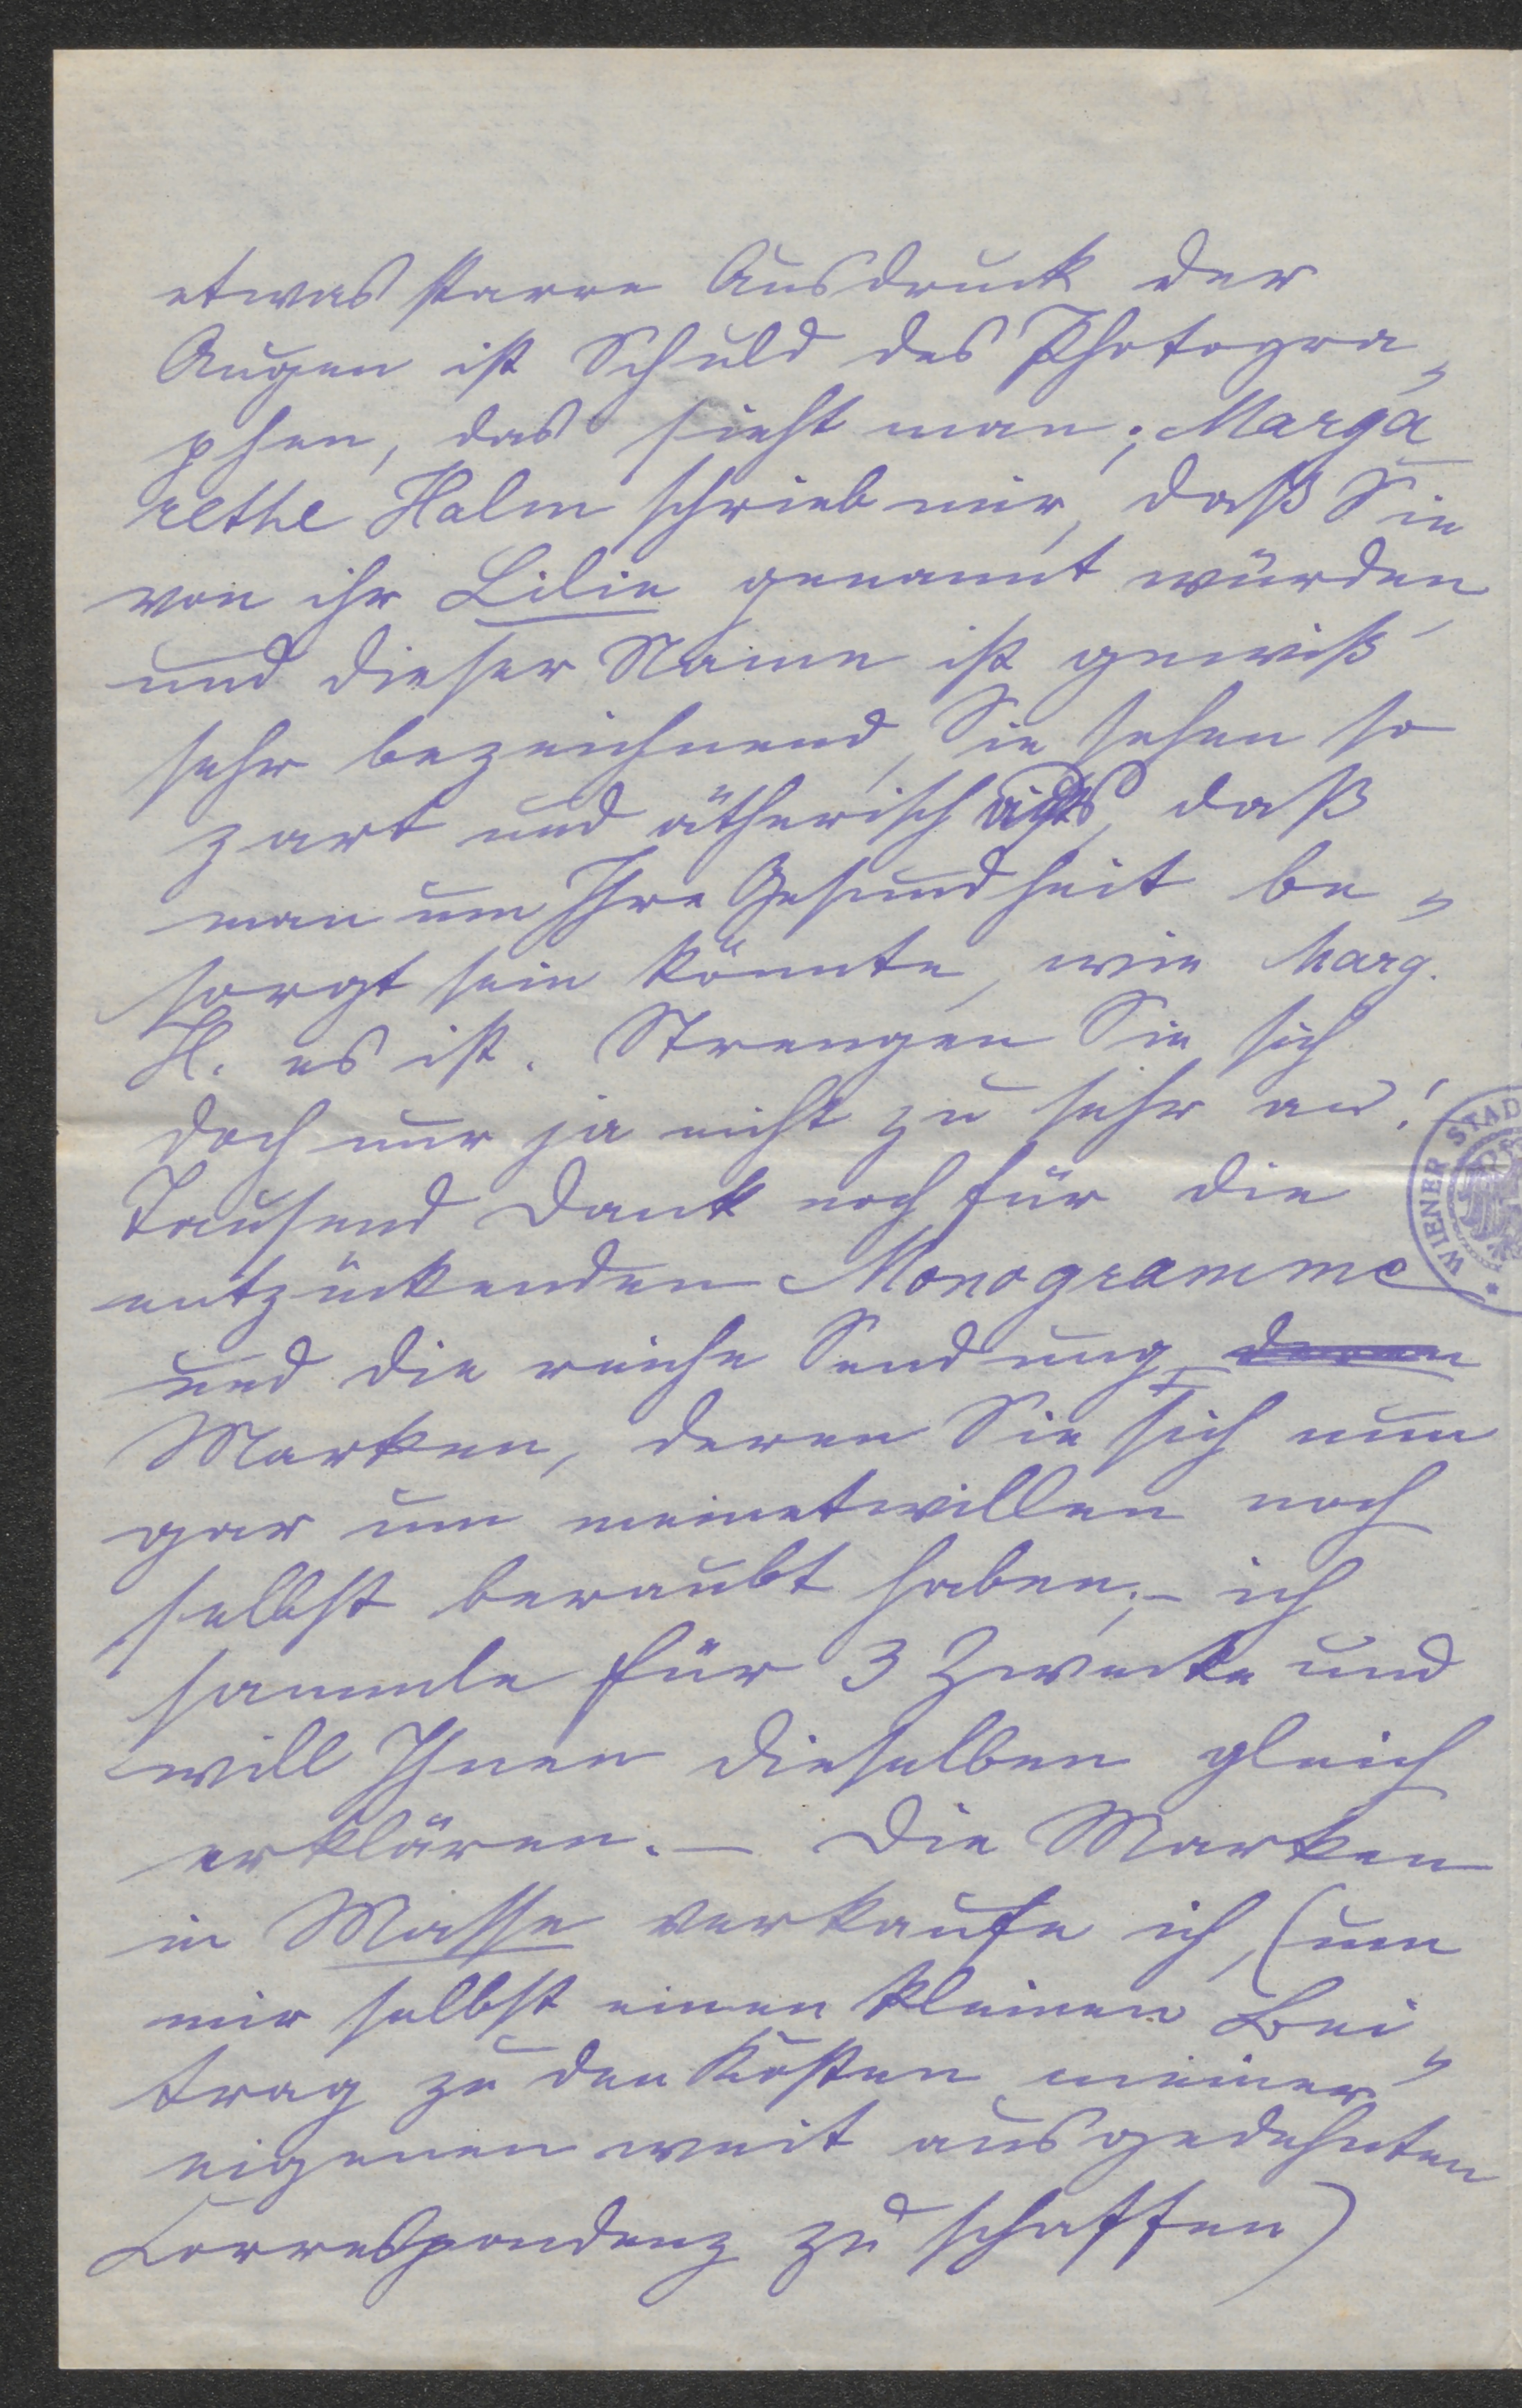 etwas starre Ausdruck der
Augen ist Schuld des Photogra-
phen, das sieht man; Marga-
rethe Halm schrieb mir, daß Sie
von ihr Lilie genannt würden,
und dieser Name ist gewiß
sehr bezeichnend, Sie sehen so
zart und ätherisch aus, daß
man um Ihre Gesundheit be-
sorgt sein könnte, wie Marg.
H. es ist. Strengen Sie sich
doch nur ja nicht zu sehr an!
Tausend Dank noch für die
entzückenden Monogramme
und die reiche Sendung deren
Marken, deren Sie sich nun
gar um meinetwillen noch
selbst beraubt haben; – ich
sammle für 3 Zwecke und
will Ihnen dieselben gleich
erklären. – Die Marken
in Masse verkaufe ich, (um
mir selbst einen kleinen Bei-
trag zu den Kosten meiner
eigenen weit ausgedehnten
Correspondenz zu schaffen)
WIENER STAD